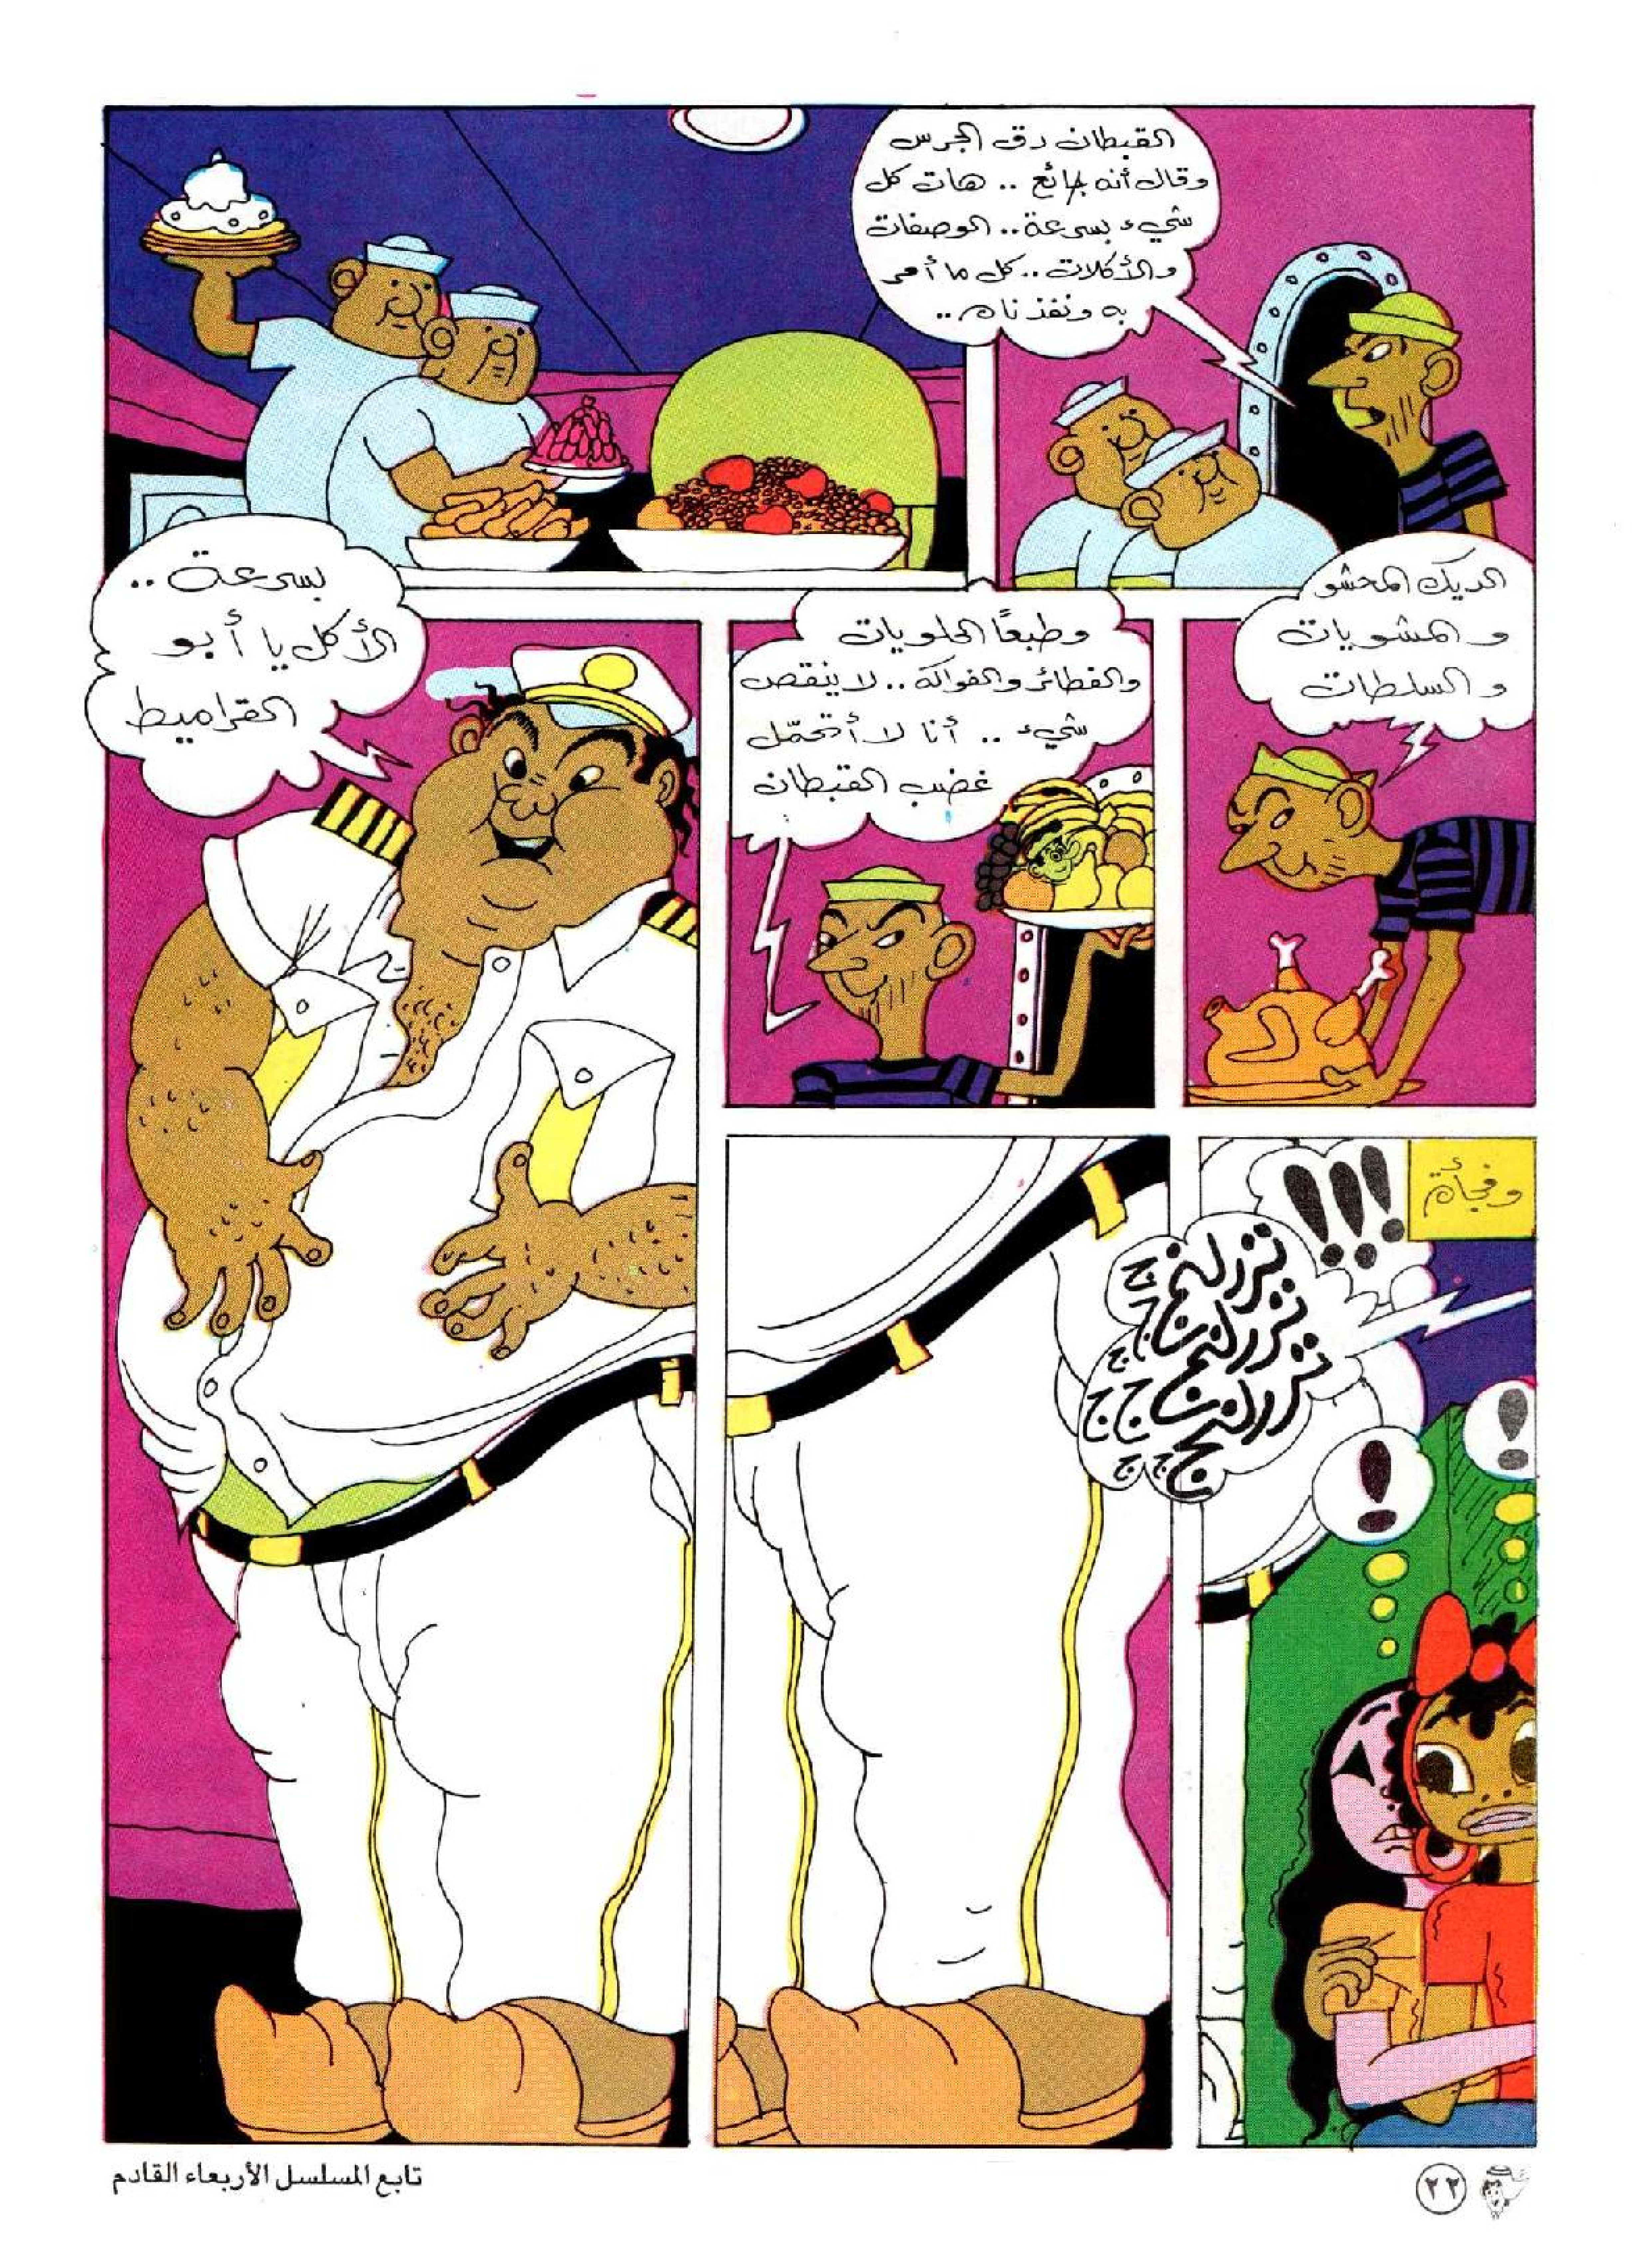 القبطان دق الجرس
وقال أنه جائع .. هات كل
شيء بسرعة .. الوصفات
والأكلات .. كل ما أمر
به ونفذناه ..
الديك المحشو
والمشويات
والسلطات
وطبعًا الحلويات
والفطائر والفواكه .. لا ينقص
شيء .. أنا لا أتحمّل
غضب القبطان
بسرعة ..
الأكل يا أبو
القراميط
وفجأة
!!!
!
!
٢٢
تابع المسلسل الأربعاء القادم